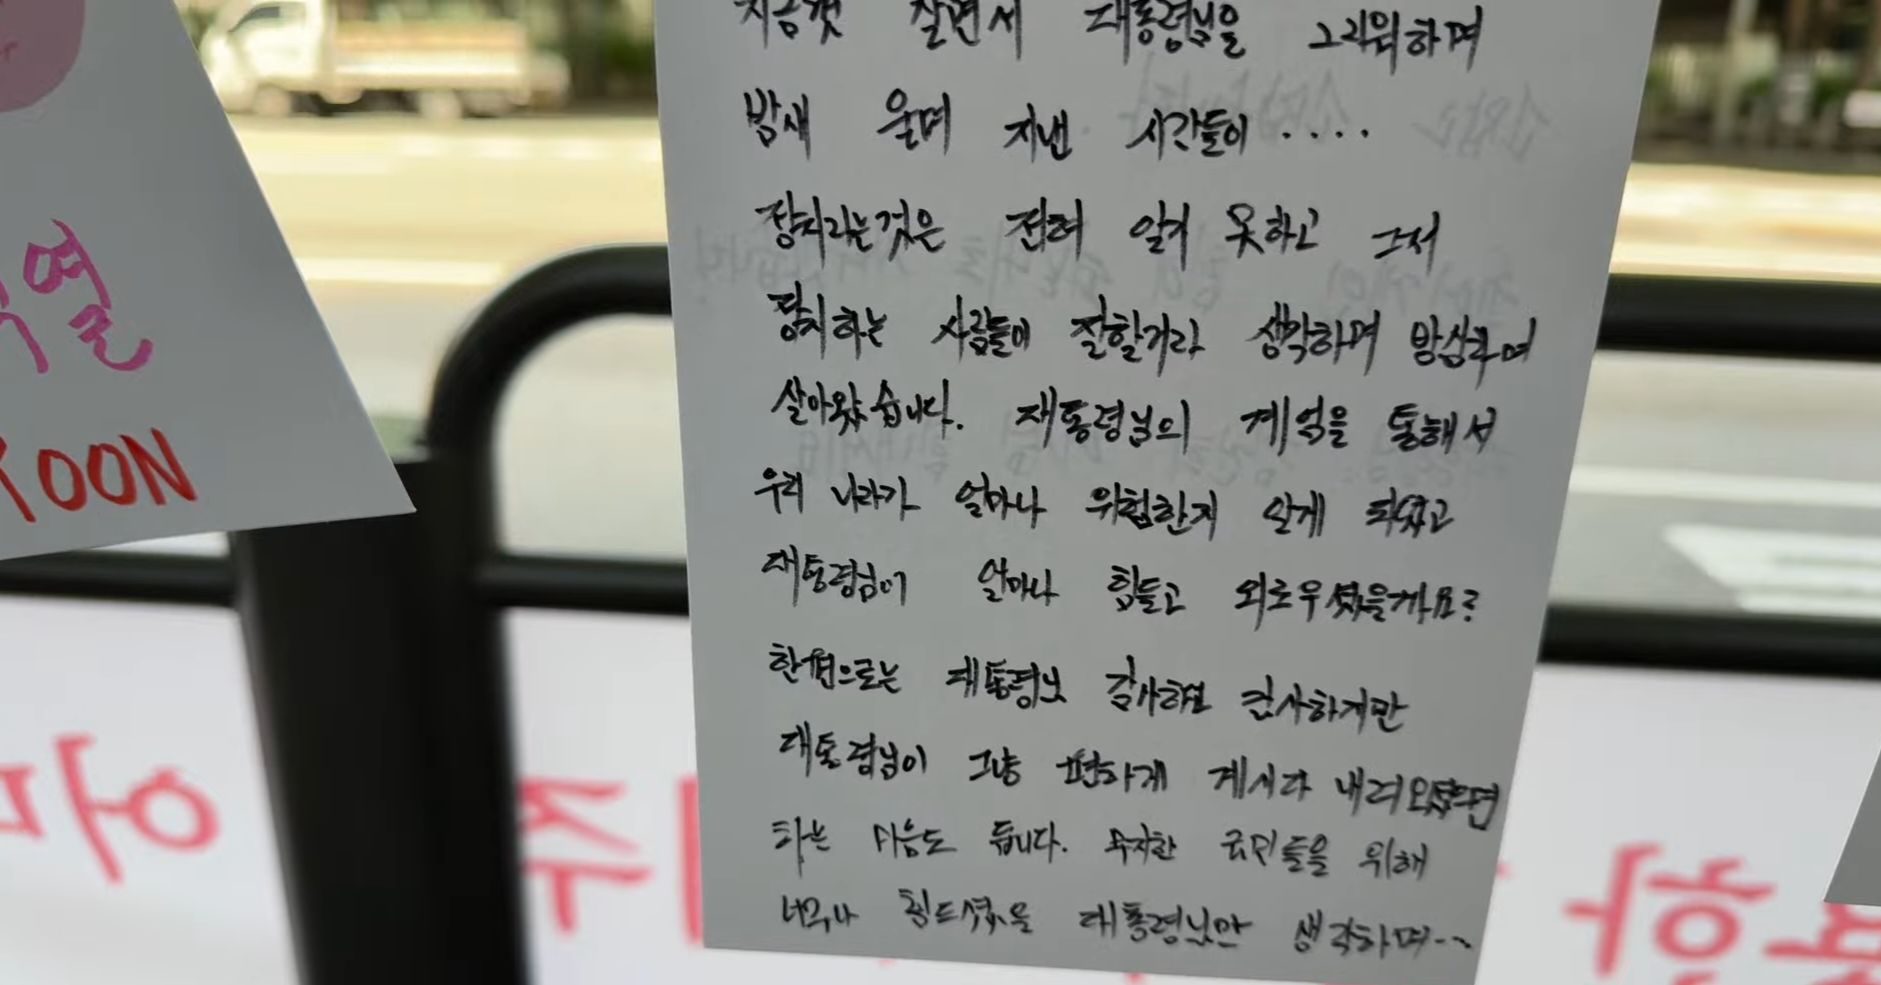 지금껏 살면서 대통령님을 그리워하며
밤새 울며 지낸 시간들이 ....
정치라는것은 전혀 알지 못하고 그저
정치하는 사람들이 잘할거라 생각하며 방심하며
살아왔습니다. 대통령님의 계엄을 통해서
우리 나라가 얼마나 위험한지 알게 되었고
대통령님이 얼마나 힘들고 외로우셨을까요?
한편으로는 대통령님 감사하고 감사하지만
대통령님이 그냥 편하게 계시다 내려오셨으면
하는 마음도 듭니다. 무지한 국민들을 위해
너무나 힘드셨을 대통령님만 생각하며...
열
YOON